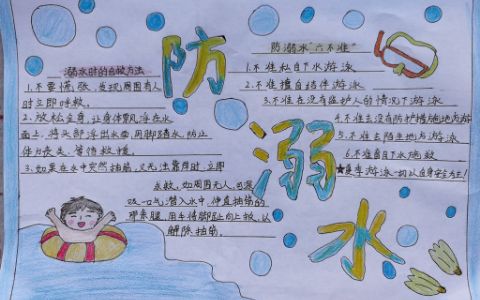 防溺水
溺水时的自救方法
1.不要慌张,发现周围有人
时立即呼救。
2.放松全身,让身体飘浮在水
面上,将头部浮出水面,用脚踢水,防止
体力丧失,等待救援。
3.如果在水中突然抽筋,又无法靠岸时,立即
求救,如周围无人,可深
吸一口气潜入水中,伸直抽筋的
那条腿,用手将脚趾向上扳,以
解除抽筋。
防溺水“六不准”
1.不准私自下水游泳
2.不准擅自结伴游泳
3.不准在没有监护人的情况下游泳
4.不准去没有防护措施地方游
5.不准去陌生地方游泳
6.不准盲目下水施救
游泳一切以自身安全为主!